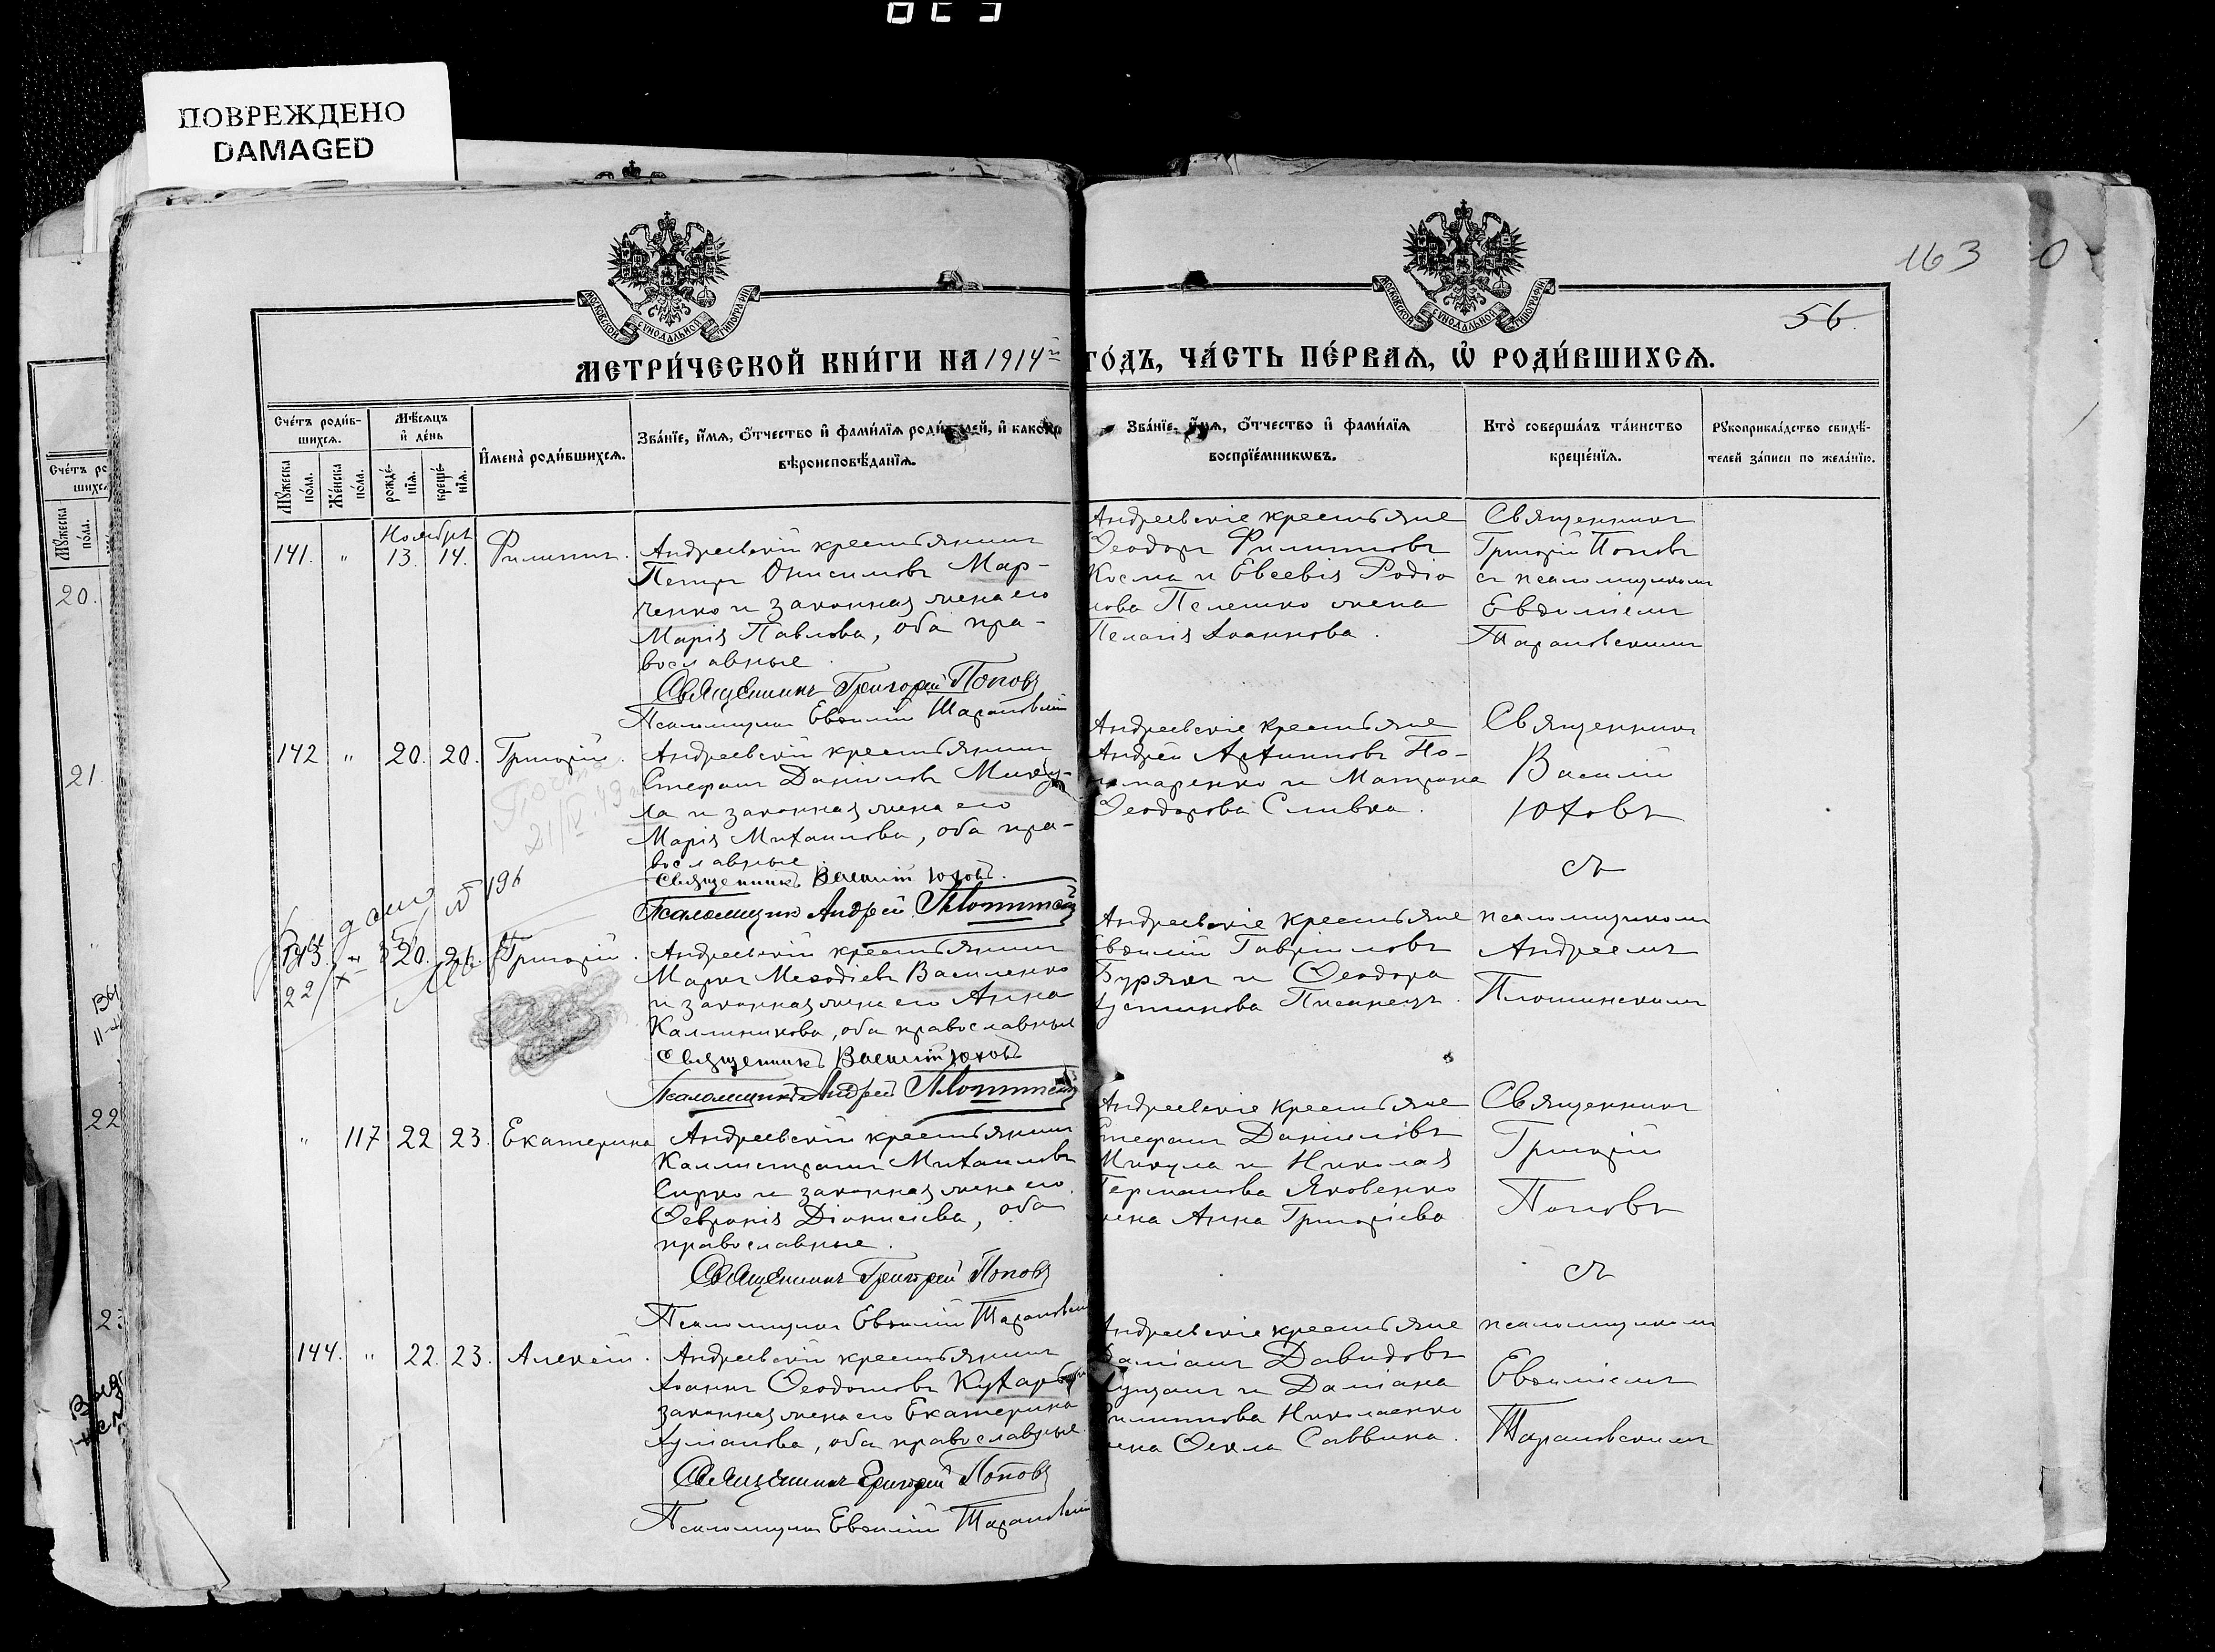 ПОВРЕЖДЕНО
DAMAGED
163
0
56.
МОСКОВСКОЙ СѴНОДАЛЬНОЙ ТИПОГРАФІИ
МОСКОВСКОЙ СѴНОДАЛЬНОЙ ТИПОГРАФІИ
МЕТРИ́ЧЕСКОЙ КНИ́ГИ НА 1914й ГО́ДЪ, ЧА́СТЬ ПЕ́РВАѦ, Ѡ҆ РОДИ́ВШИХСѦ.
Сче́тъ роди́в-
шихсѧ.
Мѣ́сѧцъ
и҆ де́нь
Мꙋ́жеска
по́ла.
Же́нска
по́ла.
рожде́-
нїѧ.
креще́-
нїѧ.
И҆мена̀ роди́вшихсѧ.
Зва́нїе, и҆́мѧ, ѻ҆́тчество и҆ фамѝлїѧ роди́телей, и҆ како́гѡ
вѣроисповѣ́данїѧ.
Зва́нїе, и҆́мѧ, ѻ҆́тчество и҆ фамѝлїѧ
воспрїе́мникѡвъ.
Кто̀ соверша́лъ та́инство
креще́нїѧ.
Рꙋкоприкла́дство свидѣ́-
телей за́писи по жела́нїю.
Ноябрь
141. " 13. 14. Филиппъ.
Андреевскій крестьянинъ
Петръ Онисимовъ Мар-
ченко и законная жена его
Марія Павлова, оба пра-
вославные.
Священникъ Григорій Поповъ
Псаломщикъ Евѳимій Тарановскій
Андреевскіе крестьяне
Ѳеодоръ Филипповъ
Косма и Евсевія Родіо
нова Пелешко жена
Пелагія Іоаннова.
Священникъ
Григорій Поповъ
съ псаломщикомъ
Евѳиміемъ
Тарановскимъ
142 " 20. 20. Григорій.
Андреевскій крестьянинъ
Стефанъ Даніиловъ Мику-
ла и законная жена его
Марія Михаилова, оба пра-
вославные.
Священникъ Василій Юховъ.
Псаломщикъ Андрей Плошинскій
Андреевскіе крестьяне
Андрей Архиповъ По-
номаренко и Матрона
Ѳеодорова Сливка.
Священникъ
Василій
Юховъ
съ
псаломщикомъ
Андреемъ
Плошинскимъ
143. 20. 26. Григорій.
Андреевскій крестьянинъ
Маркъ Меѳодіевъ Василенко
и законная жена его Анна
Каллиникова, оба православные
Священникъ Василій Юховъ
Псаломщикъ Андрей Плошинскій
Андреевскіе крестьяне
Евѳимій Гавріиловъ
Бурякъ и Ѳеодора
Іустинова Писанецъ.
" 117 22 23. Екатерина
Андреевскій крестьянинъ
Каллистратъ Михаиловъ
Сирко и законная жена его
Ѳевронія Діонисіева, оба
православные.
Священникъ Григорій Поповъ
Псаломщикъ Евѳимій Тарановскій
Андреевскіе крестьяне
Стефанъ Даніиловъ
Микула и Николая
Германова Яковенко
жена Анна Григоріева
Священникъ
Григорій
Поповъ
съ
псаломщикомъ
Евѳиміемъ
Тарановскимъ
144. " 22. 23. Алексій.
Андреевскій крестьянинъ
Іоаннъ Ѳеодотовъ Кухарь и
законная жена его Екатерина
Іуліанова, оба православные.
Священникъ Григорій Поповъ
Псаломщикъ Евѳимій Тарановскій
Андреевскіе крестьяне
Даміанъ Давидовъ
и Даміана
Филиппова Николаенко
жена Ѳекла Саввина.
20.
21.
22